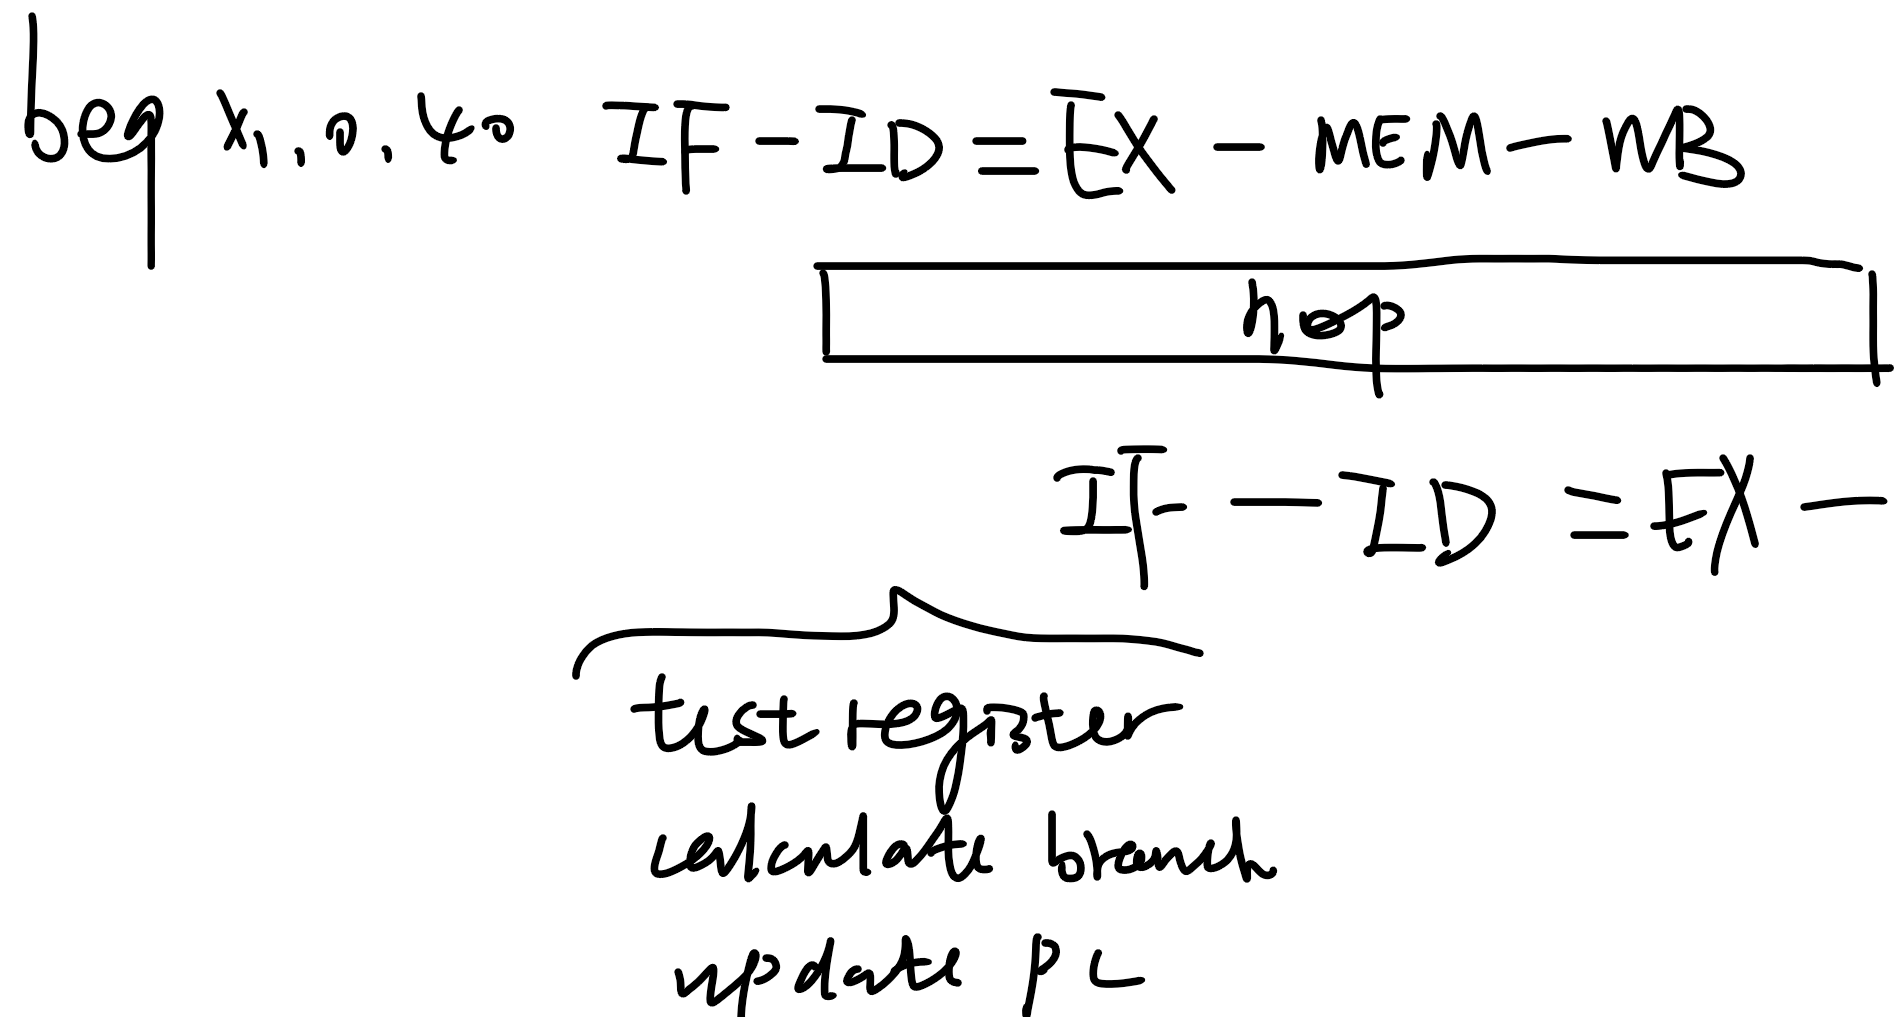 beq x1, 0, 40 IF - ID = EX - MEM - WB
nop
IF - ID = EX -
test register
calculate branch
update PC